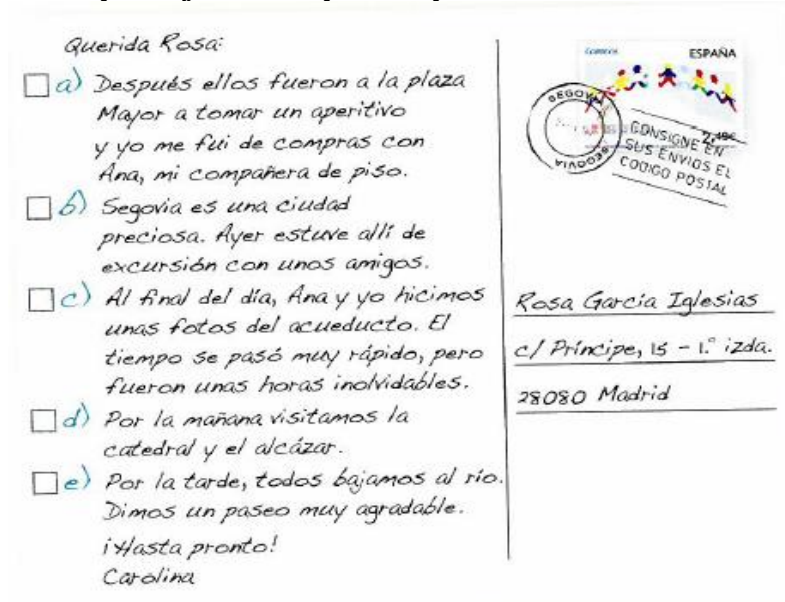 Querida Rosa:
a) Después ellos fueron a la plaza
Mayor a tomar un aperitivo
y yo me fui de compras con
Ana, mi compañera de piso.
b) Segovia es una ciudad
preciosa. Ayer estuve allí de
excursión con unos amigos.
c) Al final del día, Ana y yo hicimos
unas fotos del acueducto. El
tiempo se pasó muy rápido, pero
fueron unas horas inolvidables.
d) Por la mañana visitamos la
catedral y el alcázar.
e) Por la tarde, todos bajamos al río.
Dimos un paseo muy agradable.
¡Hasta pronto!
Carolina
Correos
ESPAÑA
SEGOVIA
SEGOVIA
2,49€
CONSIGNE EN
SUS ENVIOS EL
CODIGO POSTAL
Rosa García Iglesias
c/ Príncipe, 15 - 1.º izda.
28080 Madrid